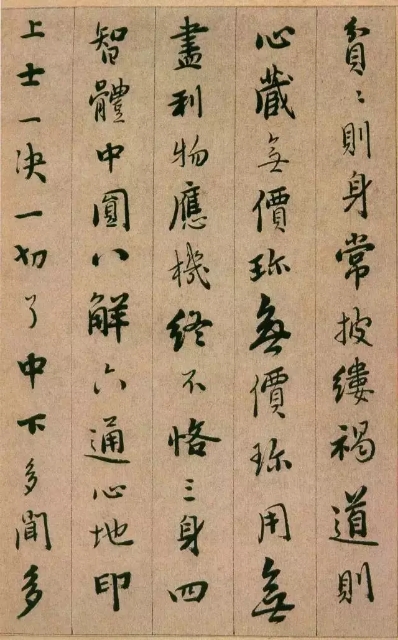 貧〻則身常披縷褐道則
心藏無價珎無價珎用無
盡利物應機終不恡三身四
智體中圓八解六通心地印
上士一决一切了中下多聞多